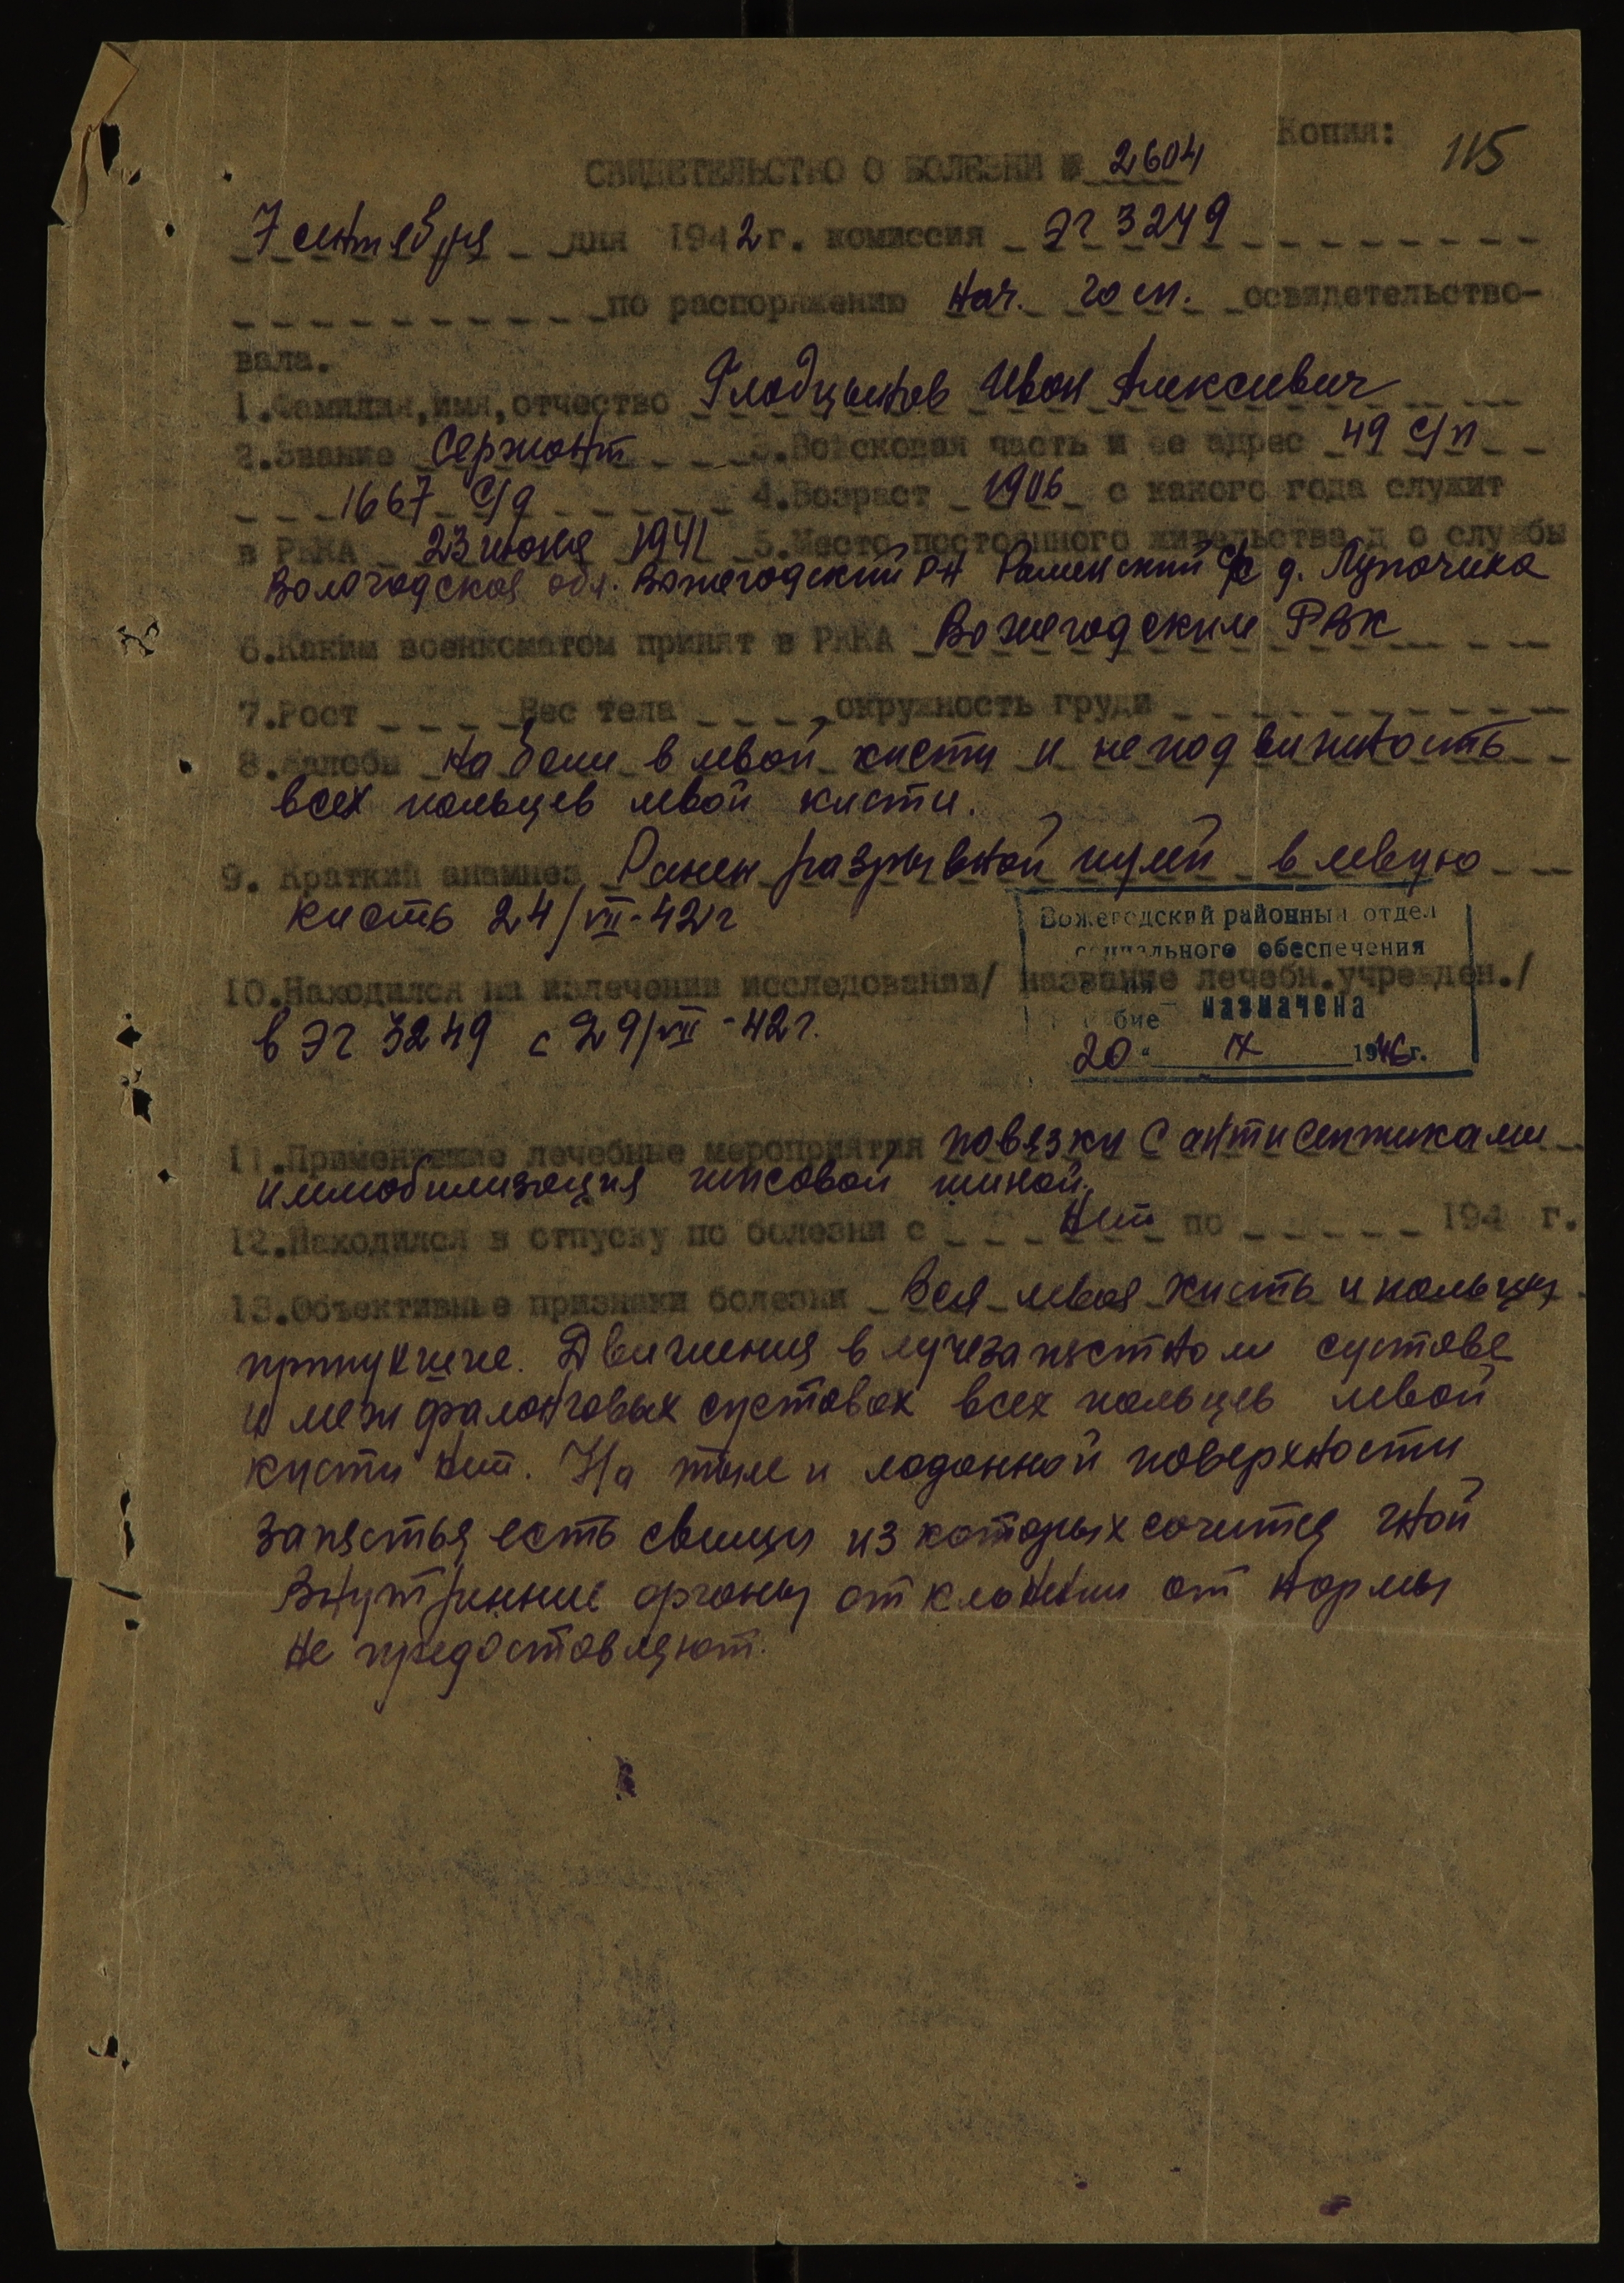 Копия:
115
СВИДЕТЕЛЬСТВО О БОЛЕЗНИ № 2604
7 сентября дня 1942 г. комиссия ЭГ 3249
по распоряжению нач. госп. освидетельство-
вала.
1.Фамилия,имя,отчество Глобцынов Иван Алексиевич
2.Звание Сержант 3.Войсковая часть и ее адрес 49 с/п
1667 с/д 4.Возраст 1906 с какого года служит
в РККА 23 июня 1941 5.Место постоянного жительства д о службы
Вологодская обл. Вожегодский рн Раменский с/с д. Лупочиха
6.Каким военкоматом принят в РККА Вожегодским РВК
7.Рост Вес тела окружность груди
8.Жалобы на боли в левой кисти и неподвижность
всех пальцев левой кисти.
9. Краткий анамнез Ранен разрывной пулей в левую
кисть 24/VII-42г
Вожегодский районный отдел
социального обеспечения
10.Находился на излечении исследовании/ название лечебн.учрежден./
назначена
бие
в ЭГ 3249 с 29/VII-42г.
20 " IX 1946г.
11.Применявшие лечебные мероприятия повязки с антисептиками
иммобилизация гипсовой шиной.
12.Находился в отпуску по болезни с нет по 194 г.
13.Объективные признаки болезни Вся левая кисть и пальцы
припухшие. Движения в лучезапястном суставе
и межфаланговых суставах всех пальцев левой
кисти нет. На тыле и ладонной поверхности
запястья есть свищи из которых сочится гной
Внутринние органы отклонении от нормы
не предоставляют.